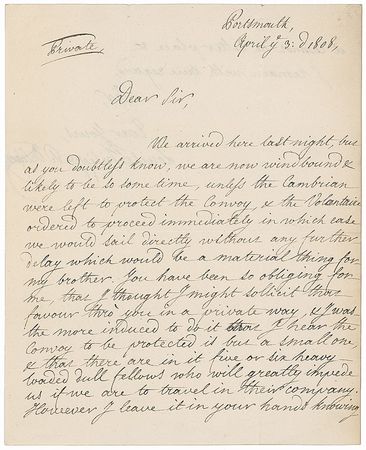 Portsmouth,
April yᵉ 3.d 1808,
Private
Dear Sir,
We arrived here last night, but
as you doubtless know, we are now windbound &
likely to be so some time, unless the Cambrian
were left to protect the Convoy, & the Volontaire
ordered to proceed immediately in which case
we would sail directly without any further
delay which would be a material thing for
my brother. You have been so obliging for
me, that I thought I might sollicit that
favour thro' you in a private way, & I was
the more induced to do it as I hear the
Convoy to be protected is but a small one,
& that there are in it five or six heavy
loaded dull fellows who will greatly impede
us if we are to travel in their company.
However I leave it in your hands knowing